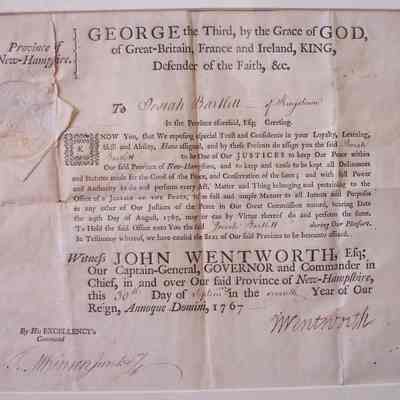 Province of
New-Hampſhire.
GEORGE the Third, by the Grace of GOD,
of Great-Britain, France and Ireland, KING,
Defender of the Faith, &c.
To Josiah Bartlett of Kingstown
In the Province aforeſaid, Eſq; Greeting.
KNOW You, that We repoſing eſpecial Truſt and Confidence in your Loyalty, Learning,
Skill and Ability, Have aſſigned, and by theſe Preſents do aſſign you the ſaid Josiah
Bartlett to be One of Our JUSTICES to keep Our Peace within
Our ſaid Province of New-Hampſhire, and to keep and cauſe to be kept all Ordinances
and Statutes made for the Good of the Peace, and Conſervation of the ſame; and with full Power
and Authority to do and perform every Act, Matter and Thing belonging and pertaining to the
Office of a JUSTICE OF THE PEACE, in as full and ample Manner to all Intents and Purpoſes
as any other of our Juſtices of the Peace in Our Great Commiſſion named, bearing Date
the Day of Auguſt, 1767, may or can by Virtue thereof do and perform the ſame.
To Hold the ſaid Office unto You the ſaid Josiah Bartlett during Our Pleaſure.
In Teſtimony whereof, we have cauſed the Seal of Our ſaid Province to be hereunto affixed.
Witneſs JOHN WENTWORTH, Eſq;
Our Captain-General, GOVERNOR and Commander in
Chief, in and over Our ſaid Province of New-Hampſhire,
this 30th Day of Septemr in the ſeventh Year of Our
Reign, Annoque Domini, 1767
By His EXCELLENCY's
Command
JWentworth